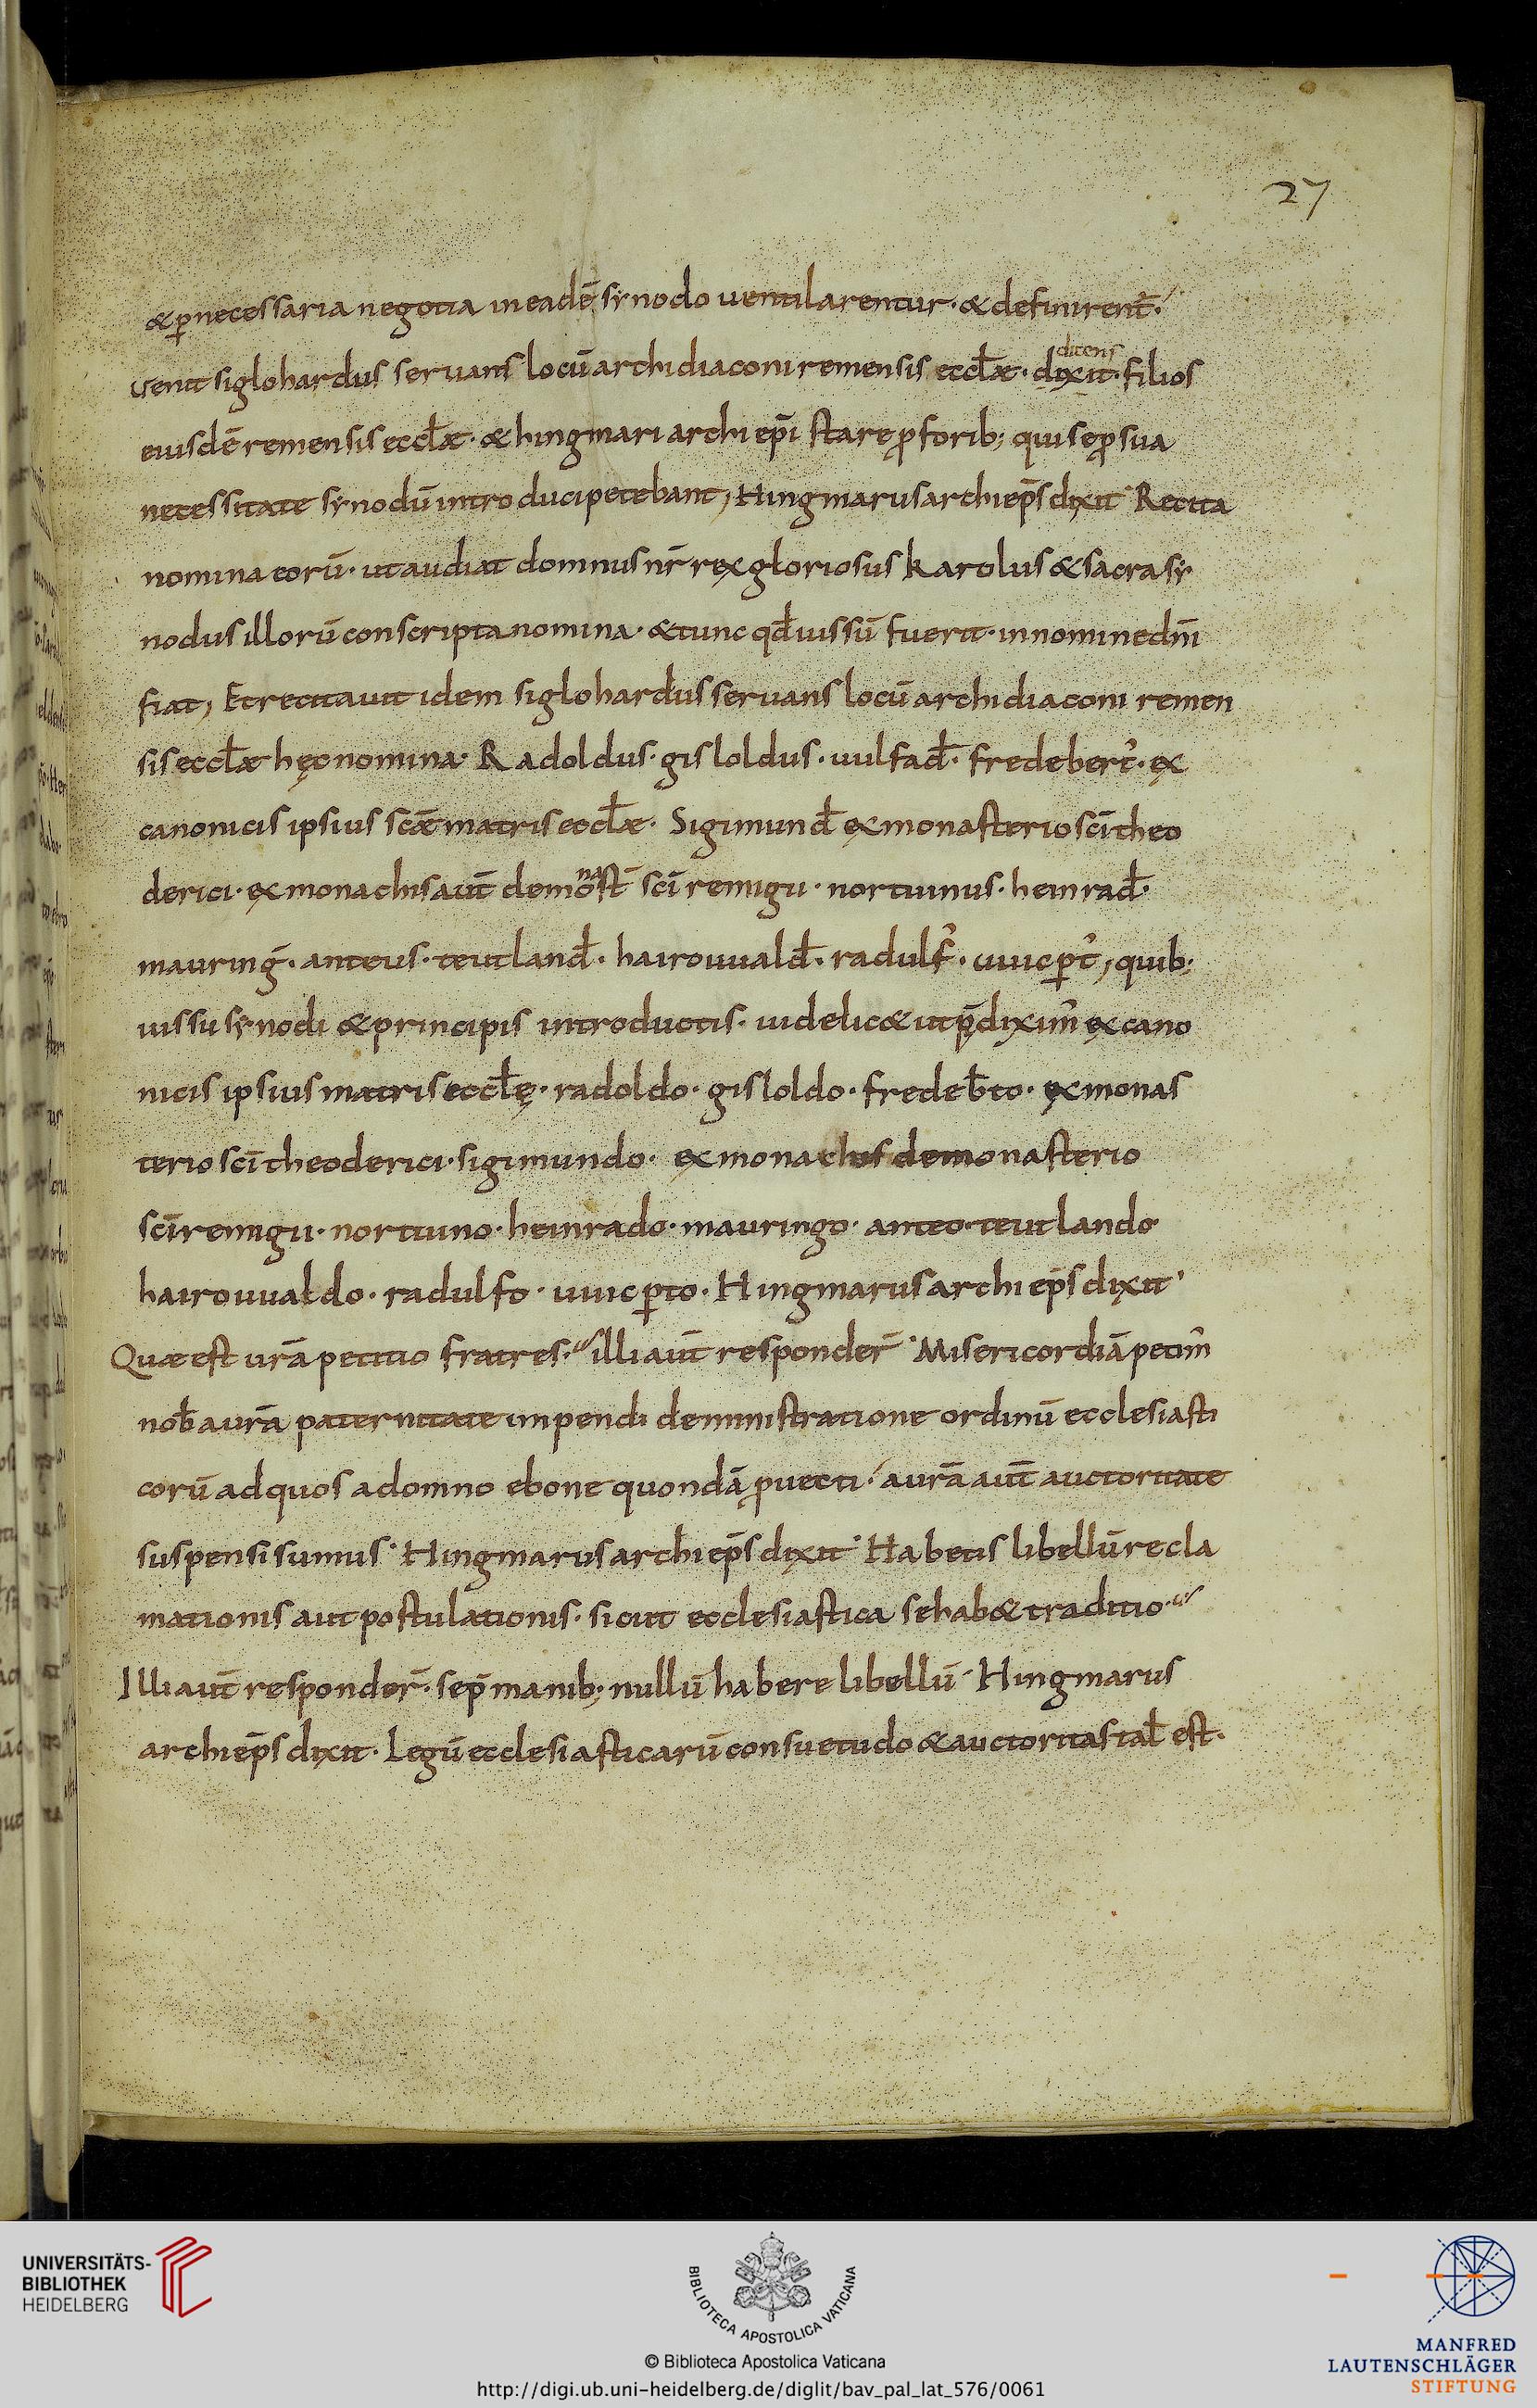 27
& p̱necessaria negotia in eadē synodo uentilarentur· & definirent̃·
Venit siglohardus seruans locū archidiaconi remensis eccl̄æ· dixit· filios
dicens
eiusdē remensis eccl̄æ· & hingmari archiep̄i stare ꝓ forib; qui se ꝓ sua
necessitate synodū introduci petebant; Hingmarus archiep̄s dixit· Recita
nomina eorū· ut audiat domnus nr̄ rex gloriosus karolus & sacra sy
nodus illorū conscripta nomina· & tunc qđ iussū fuerit· in nomine dn̄i
fiat; Et recitauit idem siglohardus seruans locū archidiaconi remen
sis eccl̄æ hęc nomina· Radoldus· gisloldus· uulfad̄· fredebert᾽· ex
canonicis ipsius scǣ matris eccl̄æ· Sigimund̄ ex monasterio sc̄i theo
derici· ex monachis aut̄ de monast̄ sc̄i remigii· nortuinus· heinrad̄·
mauring᾽· anteus· teutland̄· hairouuald̄· radulf᾽· uuicꝑt᾽; quib;
iussu synodi & principis introductis· uidelic& ut p̄dixim᾽ ex cano
nicis ipsius matris eccl̄ę· radoldo· gisloldo· fredeb̄to· ex monas
terio sc̄i theoderici· sigimundo· ex monachis de monasterio
sc̄i remigii· nortuino· heinrado· mauringo· anteo· teutlando
hairouualdo· radulfo· uuicꝑto· Hingmarus archiep̄s dixit·
Quæ est ur̄a petitio fratres· illi aut̄ responder̄· Misericordiā petim᾽
nob̄ a ur̄a paternitate impendi de ministratione ordinū ecclesiasti
corū ad quos a domno ebone quondā ꝓuecti· a ur̄a aut̄ auctoritate
suspensi sumus· Hingmarus archiep̄s dixit· Habetis libellū recla
mationis aut postulationis· sicut ecclesiastica se hab& traditio·
Illi aut̄ responder̄· se p̄ manib; nullū habere libellū· Hingmarus
archiep̄s dixit· Legū ecclesiasticarū consuetudo & auctoritas tal̄ est·
UNIVERSITÄTS-
BIBLIOTHEK
HEIDELBERG
BIBLIOTECA APOSTOLICA VATICANA
© Biblioteca Apostolica Vaticana
http://digi.ub.uni-heidelberg.de/diglit/bav_pal_lat_576/0061
MANFRED
LAUTENSCHLÄGER
STIFTUNG